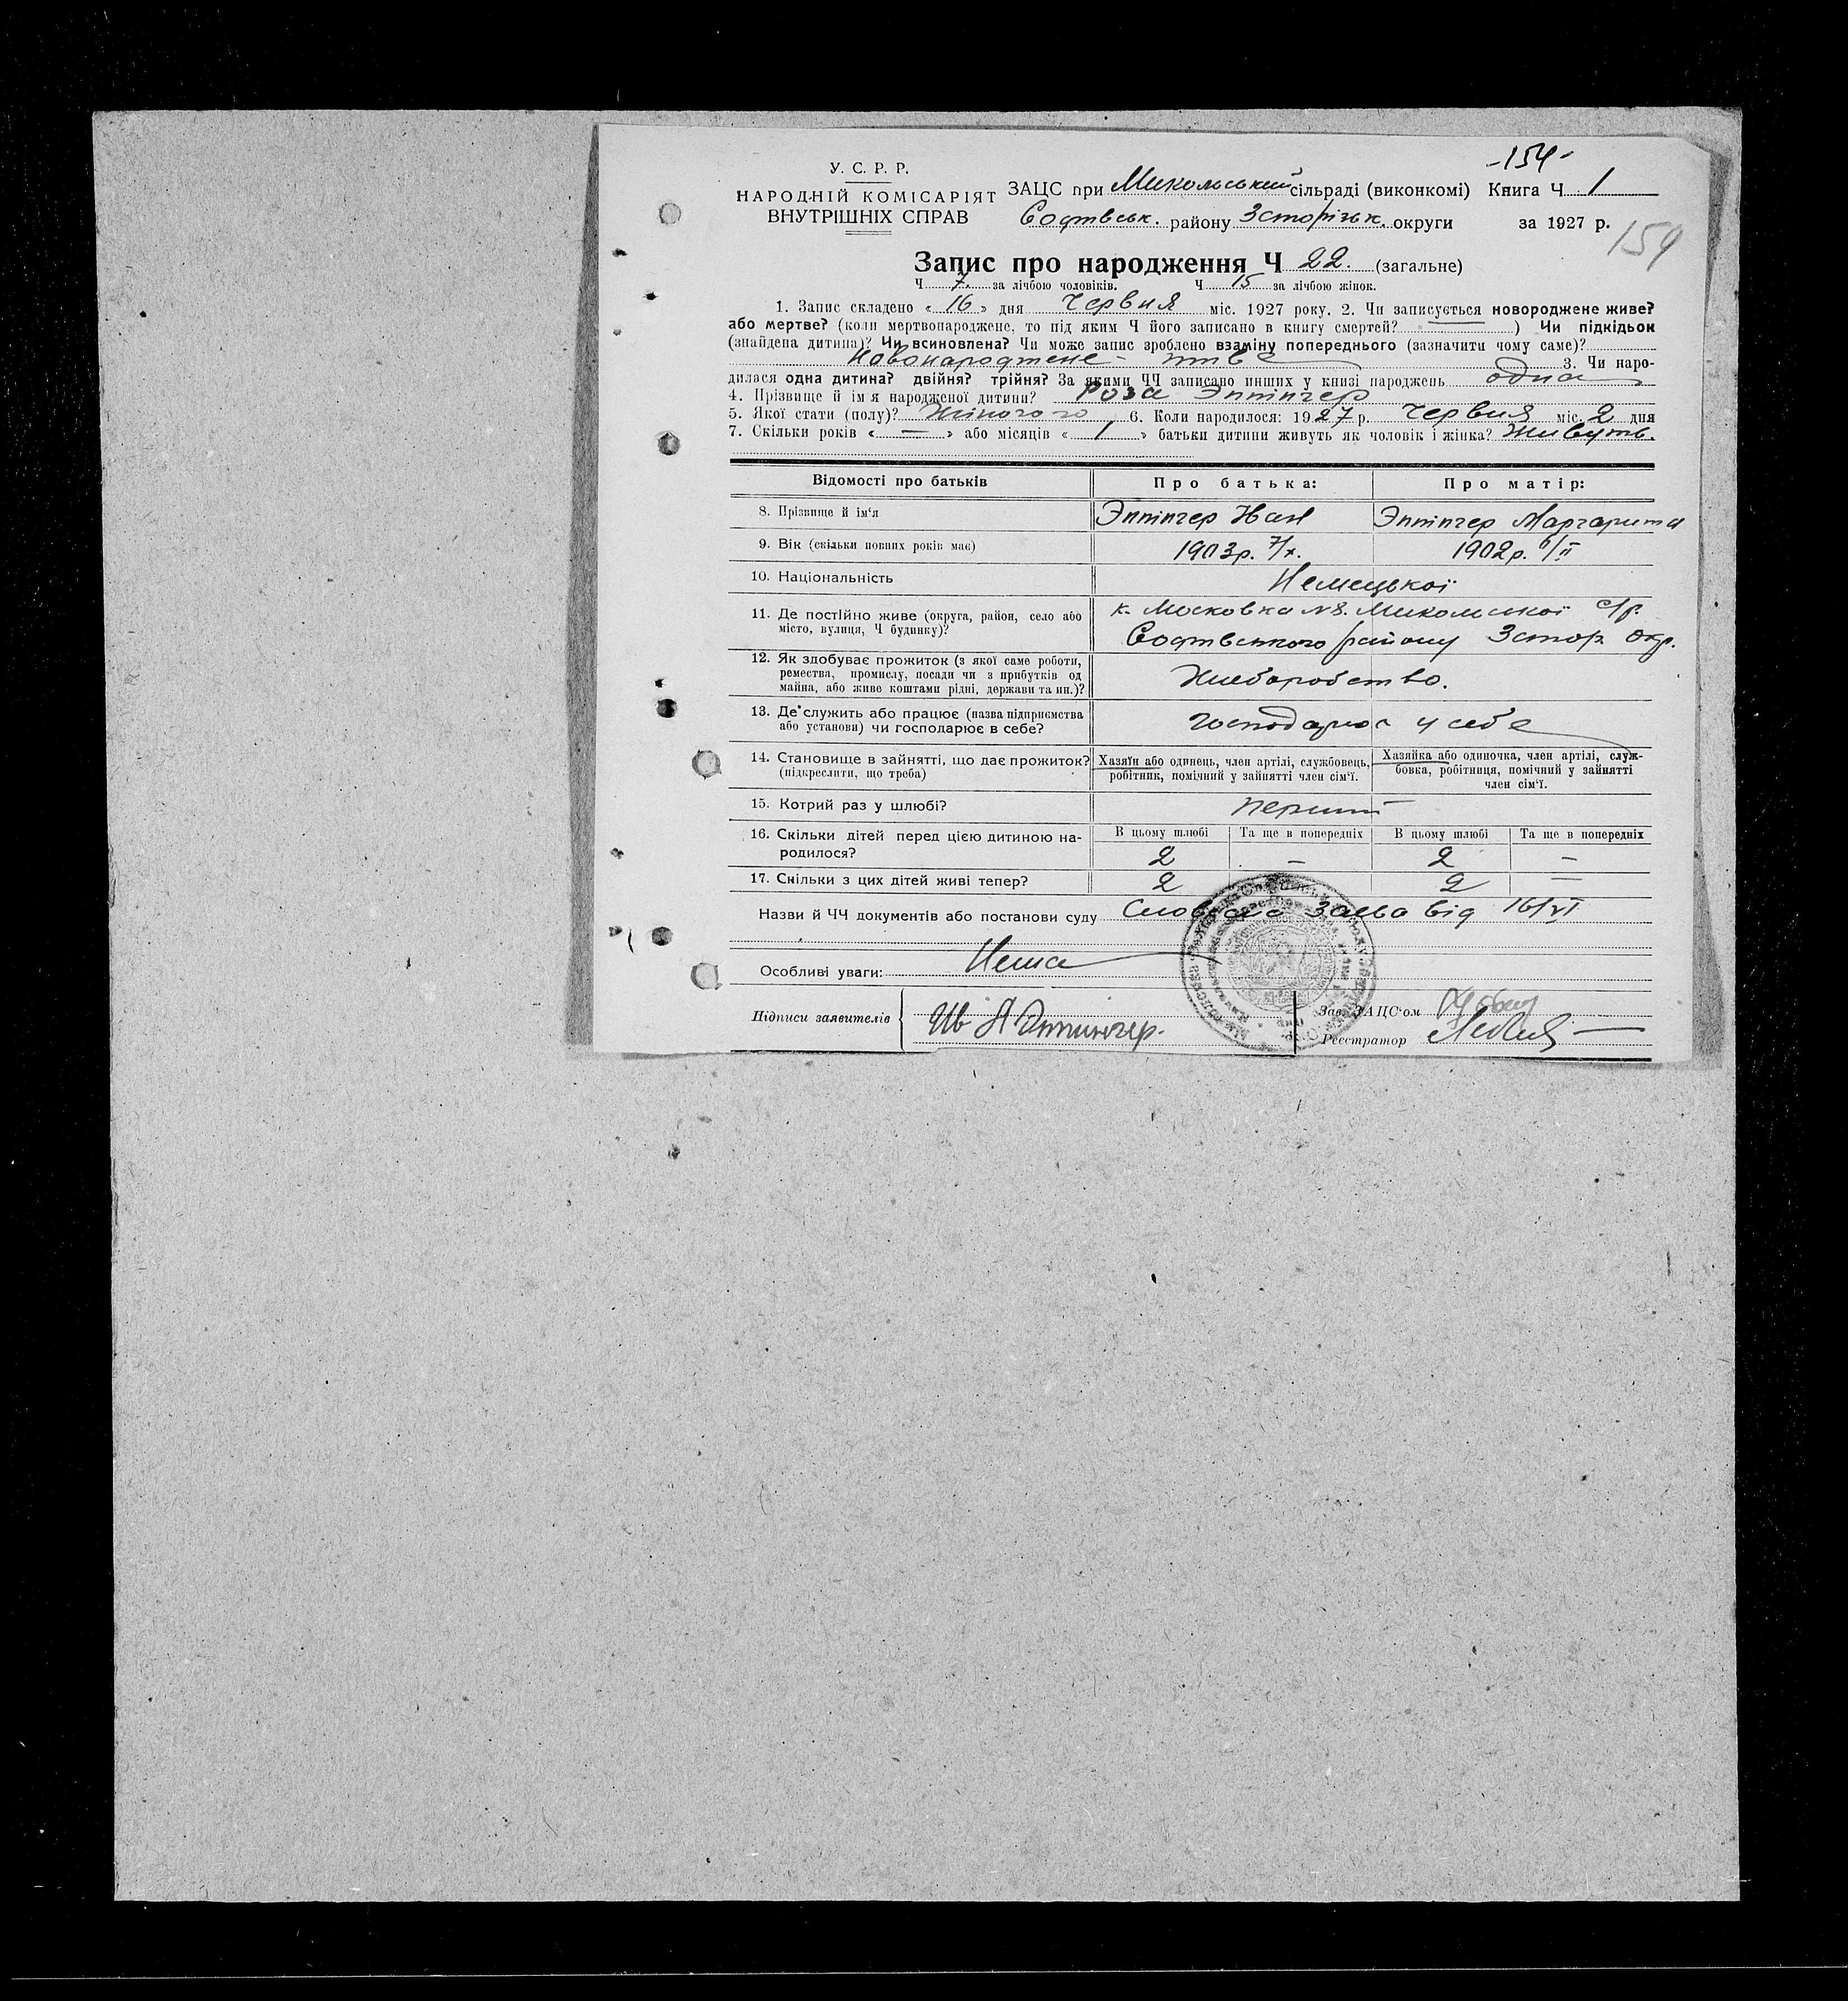 -154-
У. С. Р. Р.
НАРОДНІЙ КОМІСАРІЯТ
ВНУТРІШНІХ СПРАВ
ЗАЦС при Микольський сільраді (виконкомі) Книга Ч 1
Софівськ. району Зстопізьк. округи за 1927 р.
159
Запис про народження Ч 22. (загальне)
Ч 7. за лічбою чоловіків. Ч 15 за лічбою жінок.
1. Запис складено « 16 » дня Червня міс. 1927 року. 2. Чи записується новороджене живе?
або мертве? (коли мертвонароджене, то під яким Ч його записано в книгу смертей? — ) Чи підкідьок
(знайдена дитина)? Чи всиновлена? Чи може запис зроблено взаміну попереднього (зазначити чому саме)?
новонароджене - 3. Чи наро-
дилася одна дитина? двійня? трійня? За якими ЧЧ записано инших у книзі народжень одна
4. Прізвище й ім'я народженої дитини? Роза Эппінгер
5. Якої стати (полу)? Жіночого 6. Коли народилося: 1927 р. Червня міс. 2 дня
7. Скільки років « — » або місяців « 1 » батьки дитини живуть як чоловік і жінка? Живуть.
Відомості про батьків Про батька: Про матір:
8. Прізвище й ім'я Эппінгер Эппінгер Маргарита
9. Вік (скільки повних років має) 1903р. 7/х. 1902р. 6/II
10. Національність Немецької
11. Де постійно живе (округа, район, село або місто, вулиця, Ч будинку)?
к. Московка №8. Микольської с/р.
Софівського району Зстор. окр.
12. Як здобуває прожиток (з якої саме роботи,
ремества, промислу, посади чи з прибутків од
майна, або живе коштами рідні, держави та ин.)?
Хлеборобство.
13. Де служить або працює (назва підприємства
або установи) чи господарює в себе?
господарює у себе
14. Становище в зайнятті, що дає прожиток?
(підкреслити, що треба)
Хазяїн або одинець, член артілі, службовець,
робітник, помічний у зайнятті член сім'ї.
Хазяйка або одиночка, член артілі, служ-
бовка, робітниця, помічний у зайнятті
член сім'ї.
15. Котрий раз у шлюбі? перший
16. Скільки дітей перед цією дитиною на-
родилося?
В цьому шлюбі Та ще в попередніх В цьому шлюбі Та ще в попередніх
2 — 2 —
17. Скільки з цих дітей живі тепер? 2 2 —
Назви й ЧЧ документів або постанови суду Словесна Заява від 16/VI
Особливі уваги: Нема
Підписи заявителів Ив Эппингер.
Зав. ЗАЦС'ом
Реєстратор